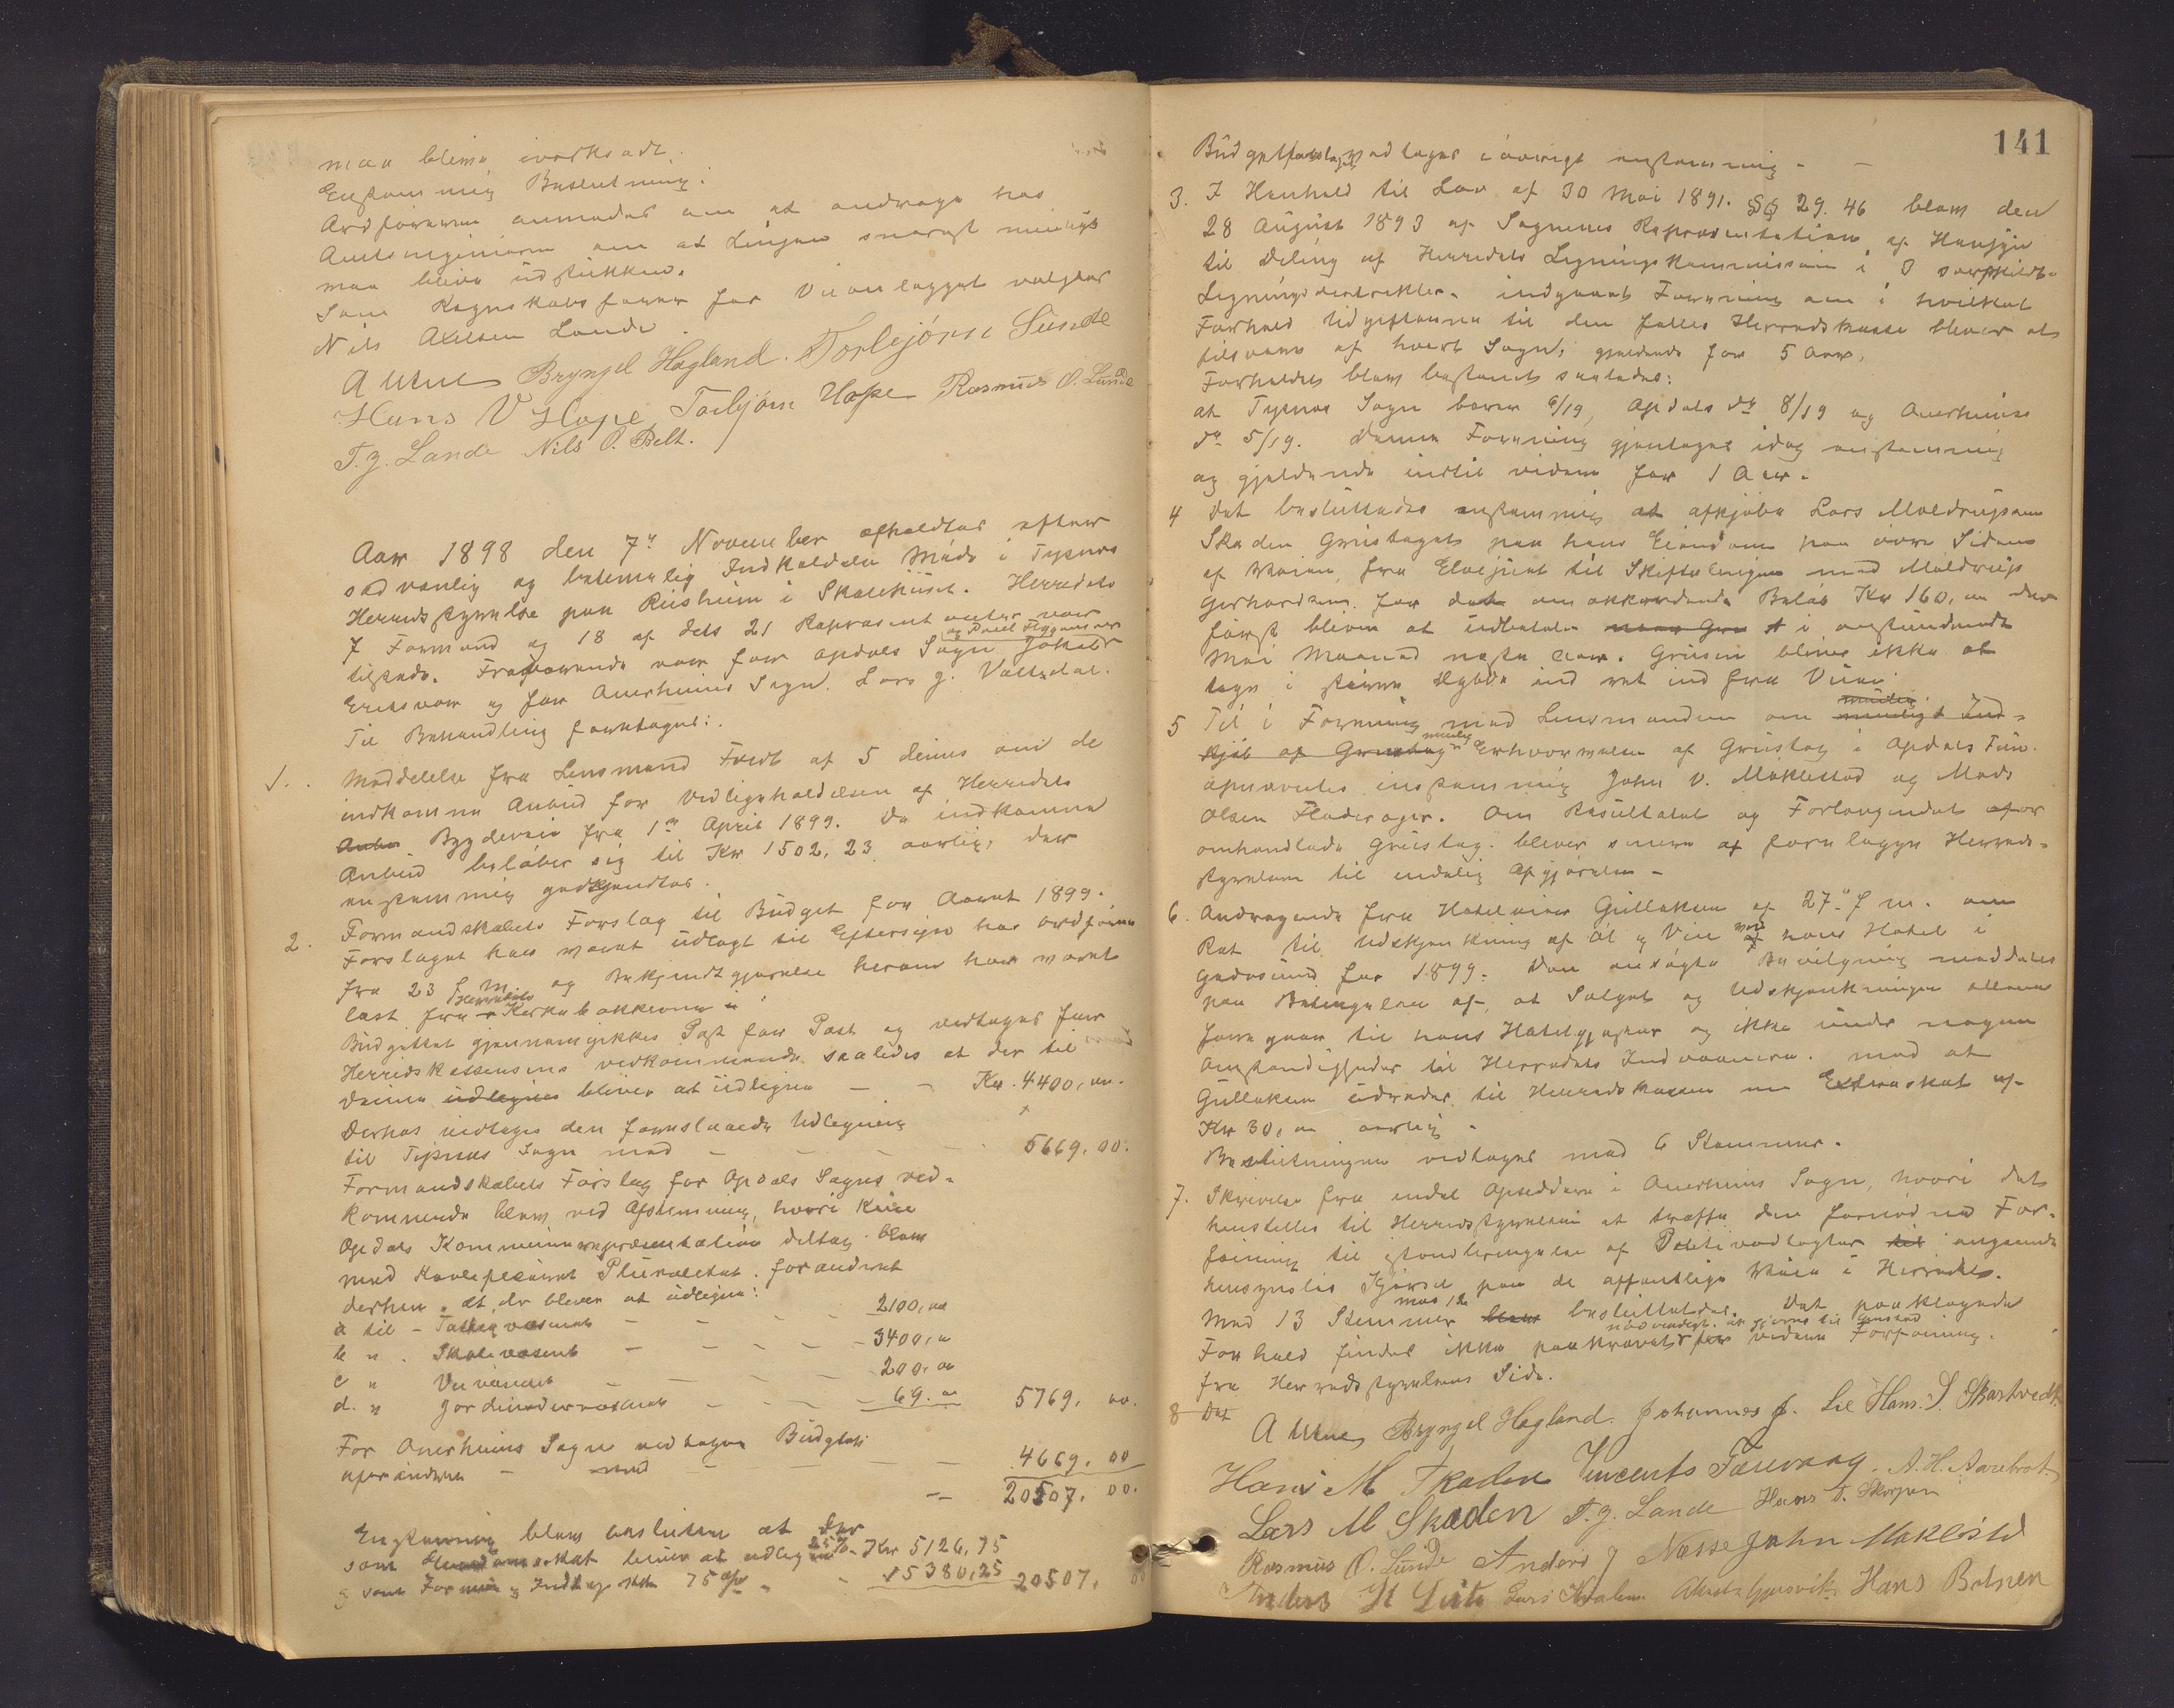 maa blive iværksadt.
Enstemmig Beslutning:
Ordføreren anmodes om at andrage hos
Amtsingeniøren om at Linjen snarest muligt
maa blive udstukken.
Som Regnskabsfører for Veianlægget valgtes
Nils Axelsen Lande.
A Brynjel Hagland. Torbjørn Sunde
Hans V Hope Torbjørn Hope Rasmus O. Lunde
T. J. Lande Nils O. Belt.
Aar 1898 den 7de November afholdtes efter
sædvanlig og betimelig Indkaldelse Møde i Tysnes
Herredsstyrelse paa Uusheim i Skolehuset. Herredets
7 Formænd og 18 af dets 21 Repræsentanter var
tilstede. Fraværende var for Opdals Sogn Jakob
Eriksvær og for Onerheims Sogn. Lars J. Vattedal.
Til Behandling foretages:
1. Meddelelse fra Lensmand Tvedt af 5 dennes om de
indkomne Anbud for Vedligeholdelsen af Herredets
Bygdeveie fra 1ste April 1899. De indkomne
Anbud beløber sig til Kr 1502,23 aarlig, der
enstemmig godkjendtes.
2. Formandskabets Forslag til Budget for Aaret 1899.
Forslaget har været udlagt til Eftersyn hos Ordføreren
fra 23 f. M. og Bekjendtgjørelse herom har været
læst fra Herredets Kirkebakkerne
Budgettet gjennemgikkes Post for Post og vedtages for
Herredskassens vedkommende saaledes at der til
denne udlignes bliver at udligne — - Kr. 4400,00.
Derhos vedtages den foreslaaede Udligning
til Tysnes Sogn med - - - - 5669,00.
Formandskabets Forslag for Opdals Sogns ved-
kommende blev ved Afstemning, hvori kun
Opdals Kommunerepræsentation deltog blev
med Pluralitet forandret
derhen, at der bliver at udligne:
a til - Fattigvæsenet - - - 2100,00
b " . Skolevæsenet - - - - 3400,00
c " Veivæsenet - - - 200,00
d. " Jordmodervæsenet - - - 69.00 5769,00.
For Onerheims Sogn vedtages Budgettet
uforandret - med - - - 4669,00
-- 20507,00.
Enstemmig blev besluttet at der
som Eiendomsskat bliver at udligne 25% Kr 5126,75
og som Formue og Indtægtsskat 75% " - 15380,25 20507,00
141
Budgetforslaget vedtages iøvrigt enstemmig. -
3. I Henhold til Lov af 30 Mai 1891. §§ 29. 46 blev den
28 August 1893 af Sognenes Repræsentation af Hensyn
til Deling af Herredets Ligningskommission i 3 særskildte
Ligningsdistrikter. indgaaet Forening om i hvilket
Forhold Udgifterne til den fælles Herredskasse bliver at
tilsvare af hvert Sogn, gjældende for 5 Aar.
Forholdet blev bestemt saaledes:
at Tysnes Sogn bærer 6/19, Opdals do 8/19 og Onerheims
do 5/19. Denne Forening gjentages idag enstemmig
og gjældende indtil videre for 1 Aar.
4 Det besluttedes enstemmig at afkjøbe Lars Meldrupsen
Skaden Grustaget paa hans Eiendom paa øvre Siden
af Veien, fra til Skiftelinjen med Meldrup
Gerhardsen. for det omakkorderede Beløb Kr 160,00 der
først bliver at udbetale i anstundende
Mai Maaned næste Aar. Grusen bliver ikke at
tage i større Dybde ind ret ind fra Veien.
5 Til i Forening med Lensmanden om mulig
Erhvervelse af Grustag i Opdals
opnævntes enstemmig John V. Meklestad og Mads
Olsen Fladerager. Om Resultatet og Forlangendet
omhandlede Grustag. bliver senere at forelægge Herreds-
styrelsen til endelig Afgjørelse -
6. Andragende fra Hoteleier Gullaksen af 27de f m. om
Ret til Udskjenkning af Øl og Vin ved hans Hotel i
Godøsund for 1899. Den ansøgte Bevilgning meddeles
paa Betingelse af, at Salget og Udskjenkningen allene
foregaar til hans Hotelgjæster og ikke under nogen
Omstændigheder til Herredets Indvaanere. mod at
Gullaksen udreder til Herredskassen en Extraskat af
Kr 30,00 aarlig -
Beslutningen vedtages med 6 Stemmer.
7. Skrivelse fra endel Opsiddere i Onerheims Sogn, hvori det
henstilles til Herredsstyrelsen at træffe den fornødne For-
føining til istandbringelse af Politivedtægter angaaende
hensynsløs Kjørsel paa de offentlige Veie i Herredet.
Med 13 Stemmer mod 12 besluttedes. Det paaklagede
Forhold findes ikke paakrævet nødvendigt at gjøres til Gjenstand for videre Forføining.
fra Herredsstyrelsens Side.
8 Det
A Brynjel Hagland. Johannes J. Lie Hans. S. Skartvedt
Hans M Skaden Vincents Færevaag. A. H. Aarebrot
Lars M Skaden T. J. Lande Hans T. Skorpen
Rasmus O. Lunde Anders J Næsse John Meklestad
Anders H Lie Lars Kvalem. Gjersvik Hans Botnen